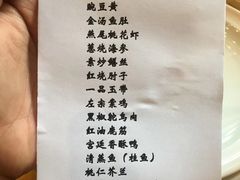 豌豆黄
金汤鱼肚
燕尾桃花虾
葱烧海参
素炒鳝丝
红烧肘子
一品玉带
左宗棠鸡
黑椒鸵鸟肉
红油鹿筋
宫廷香酥鸭
清蒸鱼（桂鱼）
桃仁芥兰